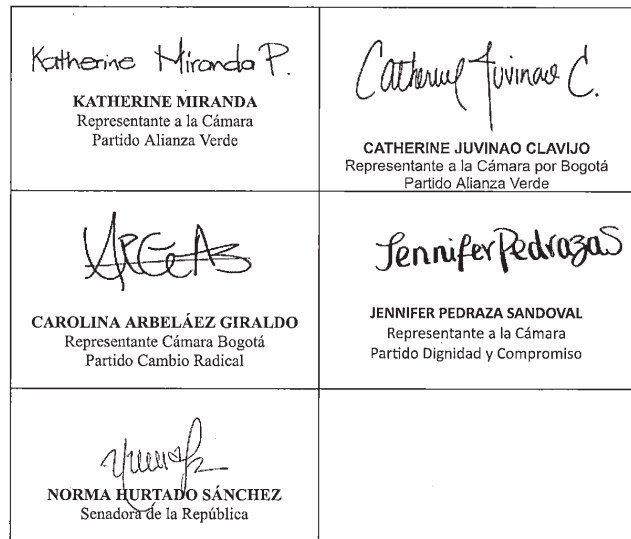 Katherine Miranda P.
KATHERINE MIRANDA
Representante a la Cámara
Partido Alianza Verde
Catherine Juvinao C.
CATHERINE JUVINAO CLAVIJO
Representante a la Cámara por Bogotá
Partido Alianza Verde
CAROLINA ARBELÁEZ GIRALDO
Representante Cámara Bogotá
Partido Cambio Radical
Jennifer Pedraza S
JENNIFER PEDRAZA SANDOVAL
Representante a la Cámara
Partido Dignidad y Compromiso
NORMA HURTADO SÁNCHEZ
Senadora de la República